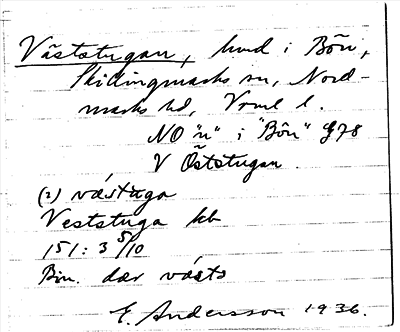 Väststugan, hmd i Bön,
Skillingmarks sn, Nord-
marks hd, Vrml l.
NO "n" i "Bön" G78
V Öststugan.
(2) västuga
Veststuga kb
151: 3 5/10
Bin. där västs
E. Andersson 1936.